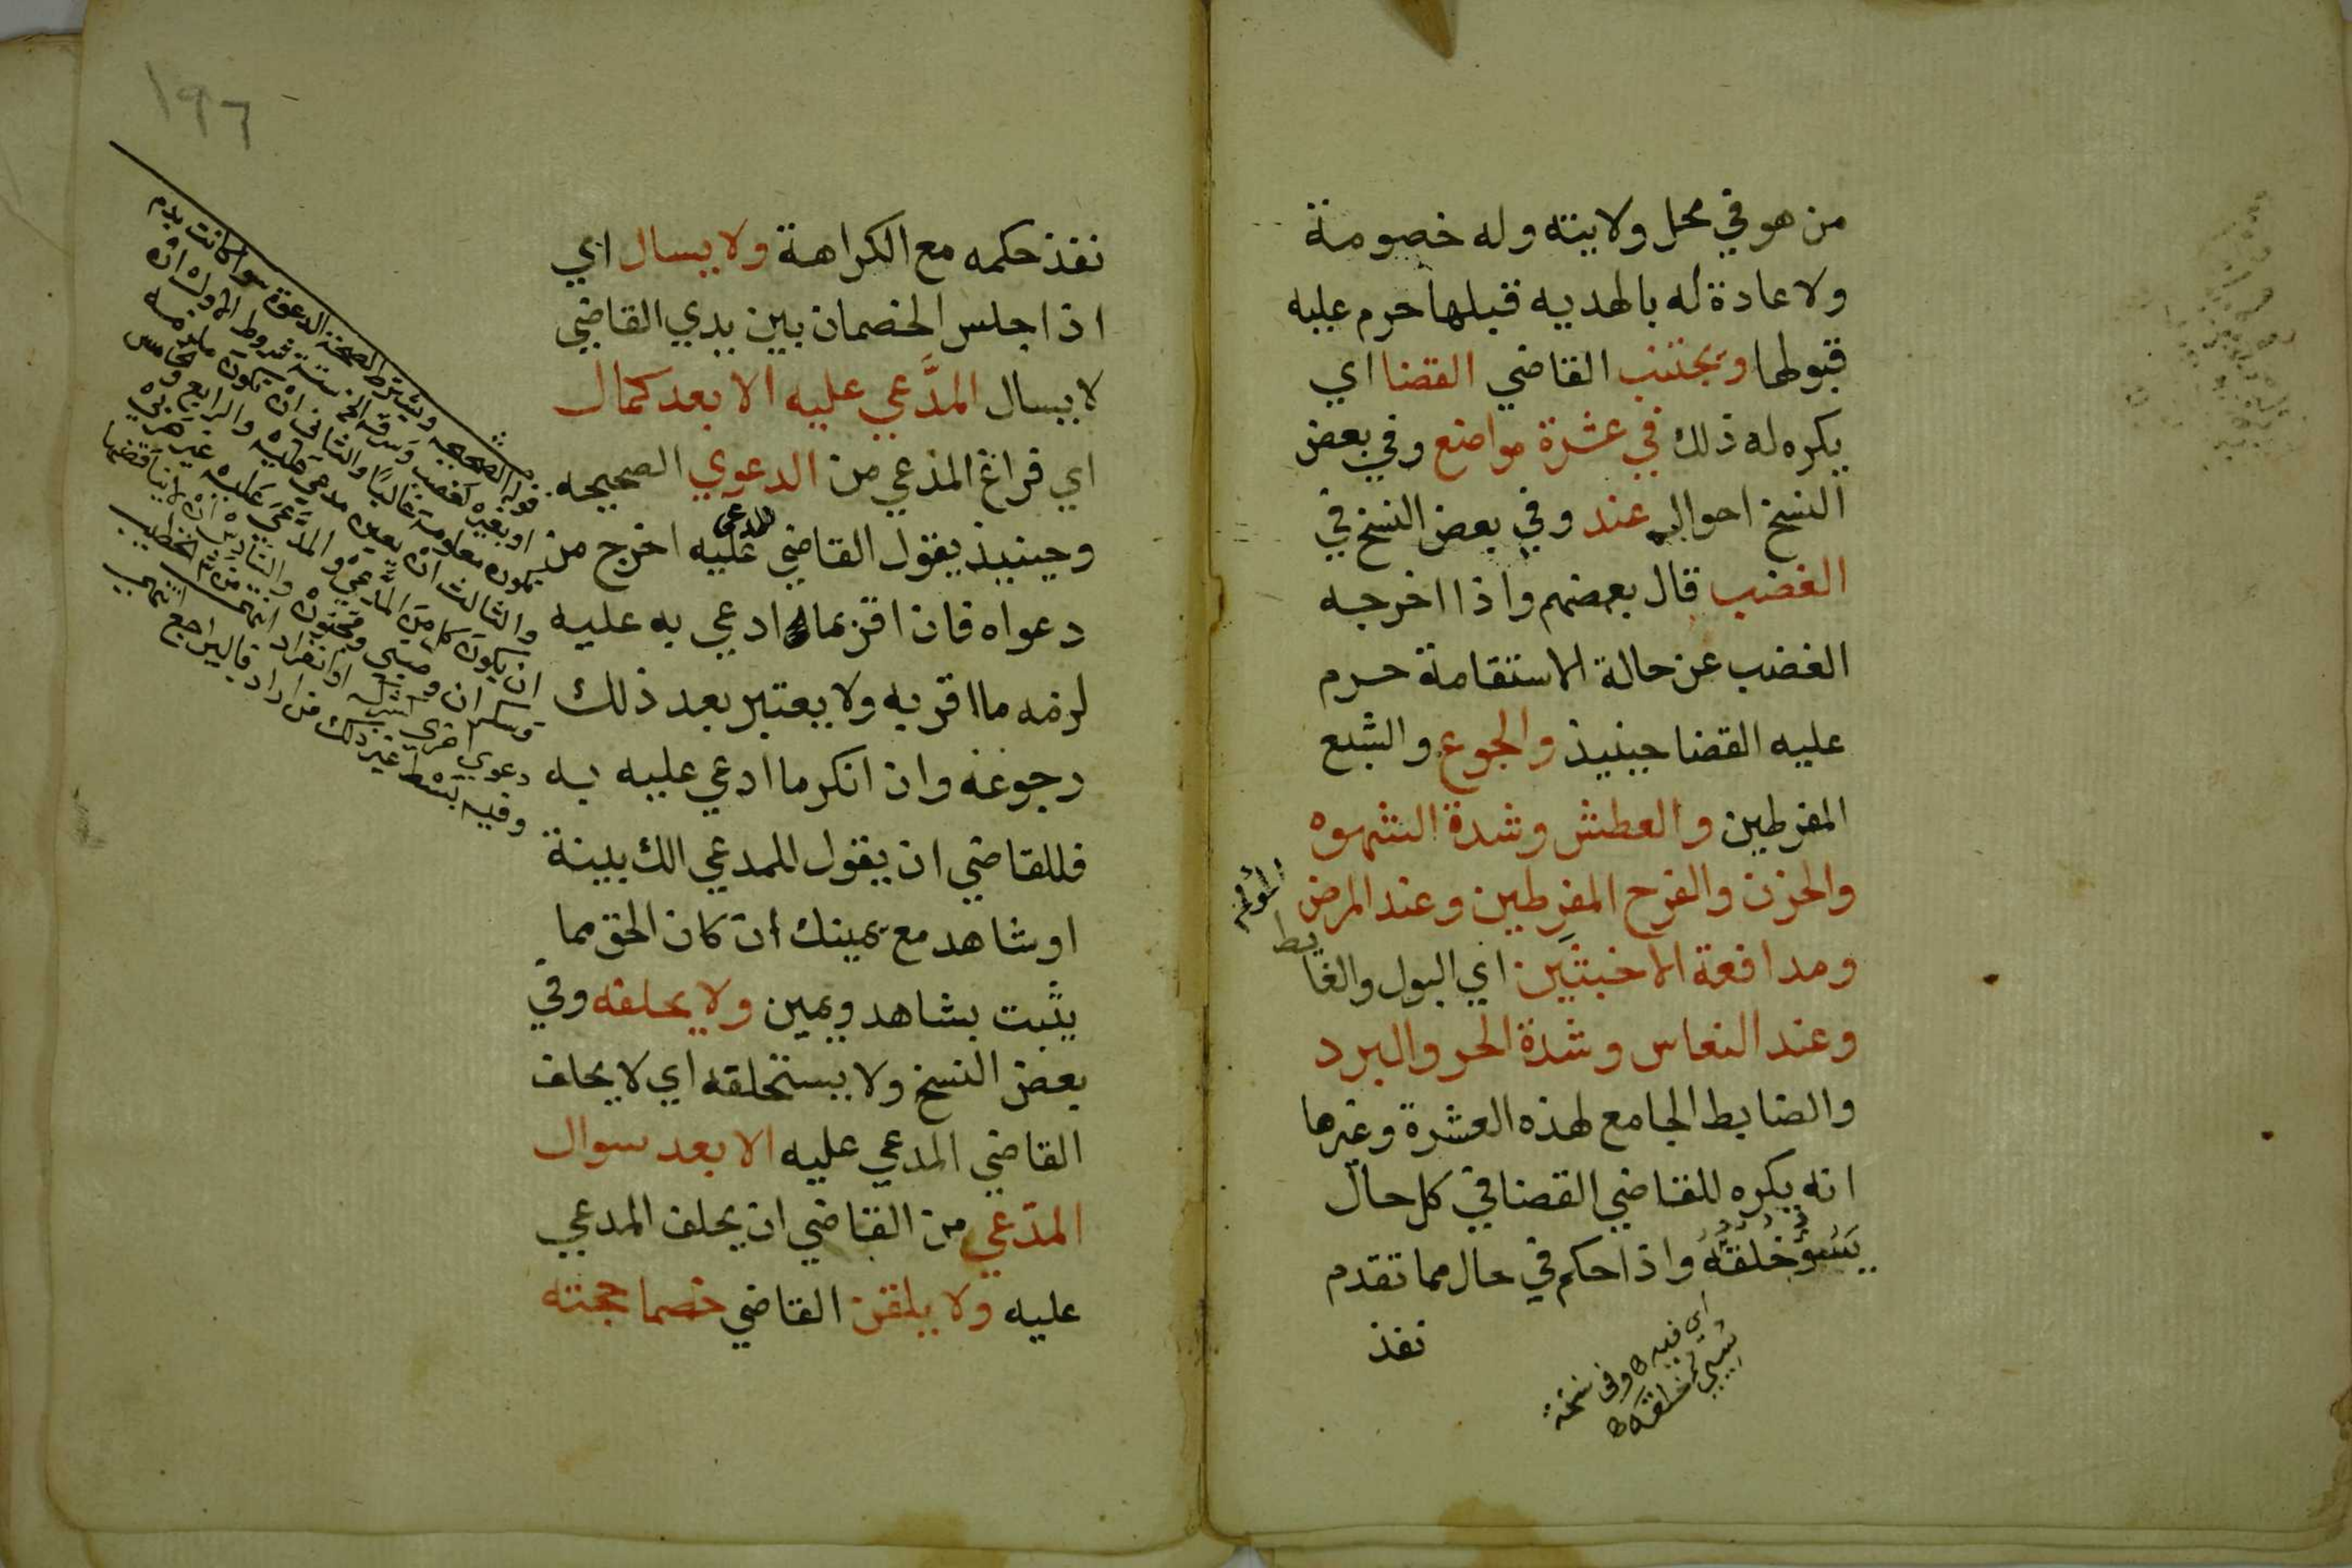 من هو في محل ولايته وله خصومة
ولا عادة له بالهديه قبلها حرم عليه
قبولها ويجتنب القاضي القضا اي
يكره له ذلك في عشرة مواضع وفي بعض
النسخ احوال عند وفي بعض النسخ في
الغضب قال بعضهم واذا اخرجه
الغضب عن حالة الاستقامة حرم
عليه القضا حينيذ والجوع والشبع
المفرطين والعطش وشدة الشهوه
والحزن والفرح المفرطين وعند المرض
المولم
ومدافعة الاخبثين اي البول والغايط
وعند النعاس وشدة الحر والبرد
والضابط الجامع لهذه العشرة وغيرها
انه يكره للقاضي القضا في كل حال
يسو خلقه واذا حكم في حال مما تقدم
نفذ
اي فيه وفي نسخة
خلقه
١٩٦
نفذ حكمه مع الكراهة ولا يسال اي
اذا جلس الخصمان بين يدي القاضي
لا يسال المدعي عليه الا بعد كمال
اي فراغ المدعي من الدعوي الصحيحه
وحينيذ يقول القاضي للمدعى عليه اخرج من
دعواه فان اقر بما ادعي به عليه
لزمه ما اقر به ولا يعتبر بعد ذلك
رجوعه وان انكر ما ادعي عليه به
فللقاضي ان يقول للمدعي الك بينة
او شاهد مع يمينك ان كان الحق مما
يثبت بشاهد ويمين ولا يحلفه وفي
بعض النسخ ولا يستحلفه اي لا يحلف
القاضي المدعي عليه الا بعد سوال
المدعي من القاضي ان يحلف المدعي
عليه ولا يلقن القاضي خصما حجته
قوله الصحيحه ويشترط لصحة الدعوة سوا كانت بدم
او بغيره كغصب وسرقة الخ ستة شروط الاول ان
يكون معلومة غالبا والثاني ان تكون ملزمه
والثالث ان يعين مدعي عليه والرابع والخامس
ان يكون كل من المدعي والمدعي عليه غير حربي
وسكران وصبي ومجنون والسادس ان لا يناقضها
دعوي اخري او انفراد انتهى من الخطيب
وفيه بسط غير ذلك من اراد فاليراجع انتهي